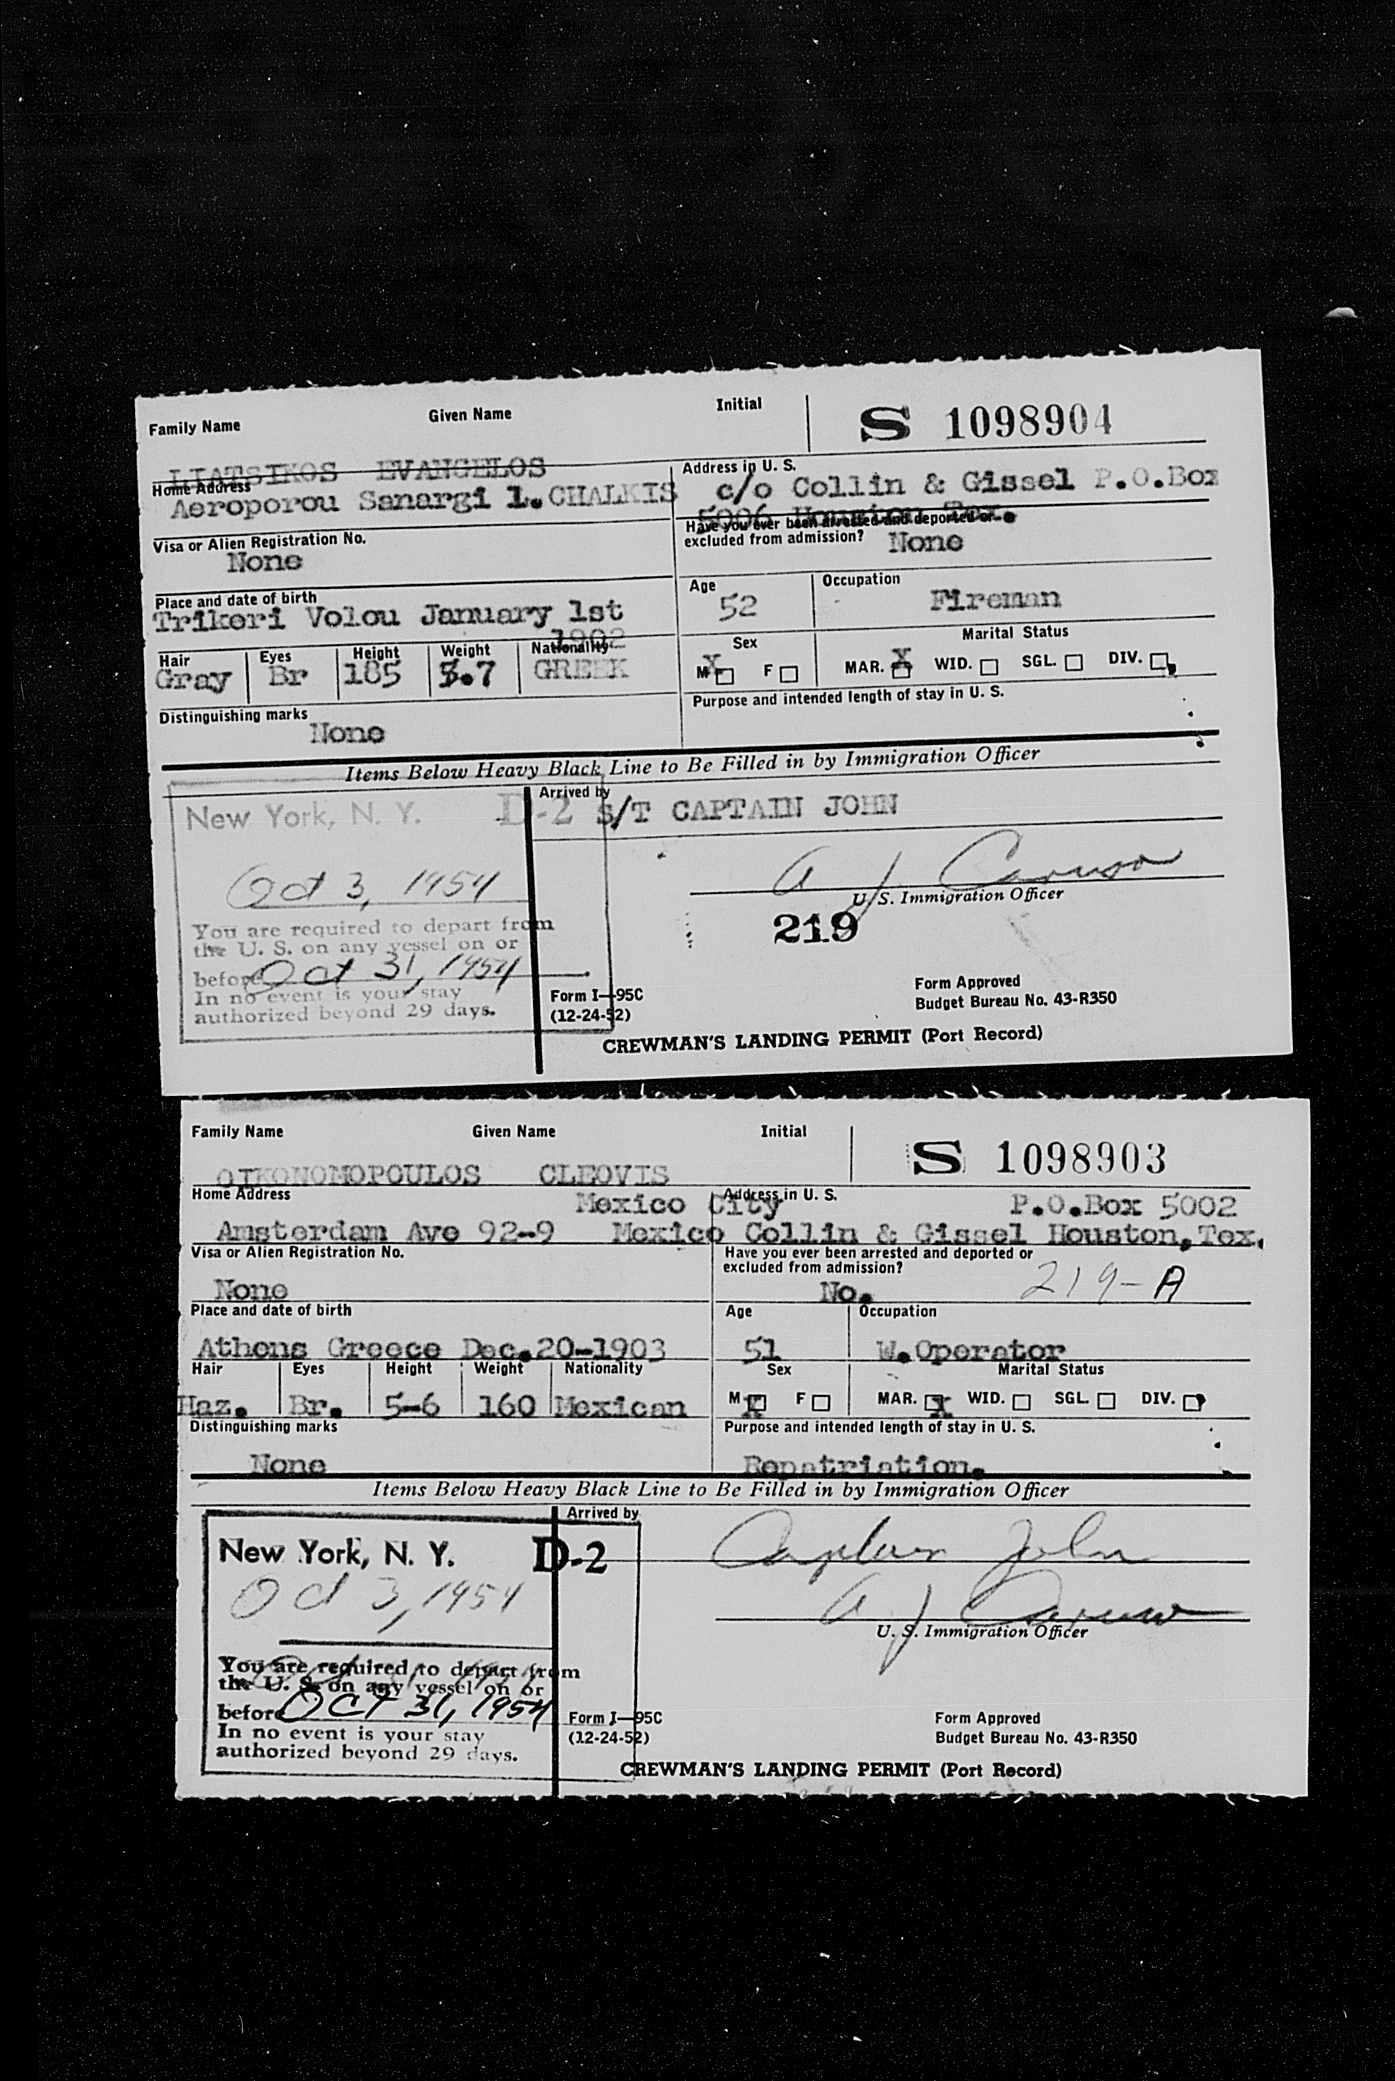 Family Name Given Name Initial S 1098904
LIATSIKOS EVANGELOS
Home Address Address in U. S.
Aeroporou Sanargi 1. CHALKIS c/o Collin & Gissel P.O.Box
5006 Houston Tex.
Visa or Alien Registration No. Have you ever been arrested and deported or
excluded from admission? None
None
Place and date of birth Age Occupation
Trikeri Volou January 1st 52 Fireman
1902
Hair Eyes Height Weight Nationality Sex Marital Status
Gray Br 185 5.7 GREEK M X F MAR. X WID. SGL. DIV.
Distinguishing marks Purpose and intended length of stay in U. S.
None
Items Below Heavy Black Line to Be Filled in by Immigration Officer
Arrived by
New York, N. Y. D-2 S/T CAPTAIN JOHN
Oct 3, 1954 A J Caruso
U. S. Immigration Officer
You are required to depart from 219
the U. S. on any vessel on or
before Oct 31, 1954
In no event is your stay Form I-95C Form Approved
authorized beyond 29 days. (12-24-52) Budget Bureau No. 43-R350
CREWMAN'S LANDING PERMIT (Port Record)
Family Name Given Name Initial S 1098903
OIKONOMOPOULOS CLEOVIS
Home Address Mexico City Address in U. S. P.O.Box 5002
Amsterdam Ave 92-9 Mexico Collin & Gissel Houston,Tex.
Visa or Alien Registration No. Have you ever been arrested and deported or
excluded from admission? 219-A
None No.
Place and date of birth Age Occupation
Athens Greece Dec.20-1903 51 W.Operator
Hair Eyes Height Weight Nationality Sex Marital Status
Haz. Br. 5-6 160 Mexican M X F MAR. X WID. SGL. DIV.
Distinguishing marks Purpose and intended length of stay in U. S.
None Repatriation.
Items Below Heavy Black Line to Be Filled in by Immigration Officer
Arrived by
New York, N. Y. D-2 Captain John
Oct 3, 1954 A J Caruso
U. S. Immigration Officer
You are required to depart from
the U. S. on any vessel on or
before OCT 31, 1954 Form I-95C Form Approved
In no event is your stay (12-24-52) Budget Bureau No. 43-R350
authorized beyond 29 days.
CREWMAN'S LANDING PERMIT (Port Record)